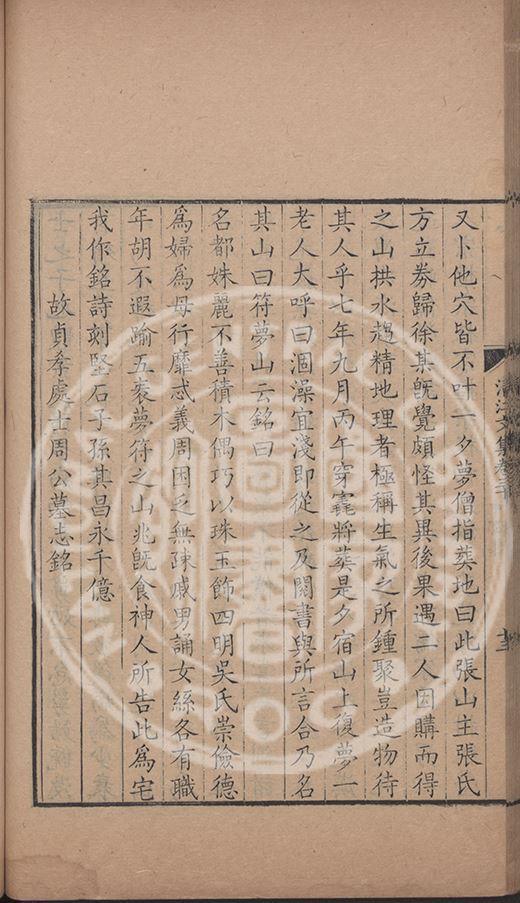 又卜他穴皆不叶一夕夢僧指葬地曰此張山主張氏
方立券歸徐某旣覺頗怪其異後果遇二人因購而得
之山拱水趨精地理者極稱生氣之所鍾聚豈造物待
其人乎七年九月丙午穿竁將葬是夕宿山上復夢一
老人大呼曰涸澡宜淺即從之及閱書與所言合乃名
其山曰符夢山云銘曰
名都姝麗不善積木偶巧以珠玉飾四明吳氏崇儉德
爲婦爲母行靡忒義周困乏無疎戚男誦女絲各有職
年胡不遐踰五袠夢符之山兆旣食神人所告此爲宅
我作銘詩刻堅石子孫其昌永千億
故貞孝處士周公墓志銘